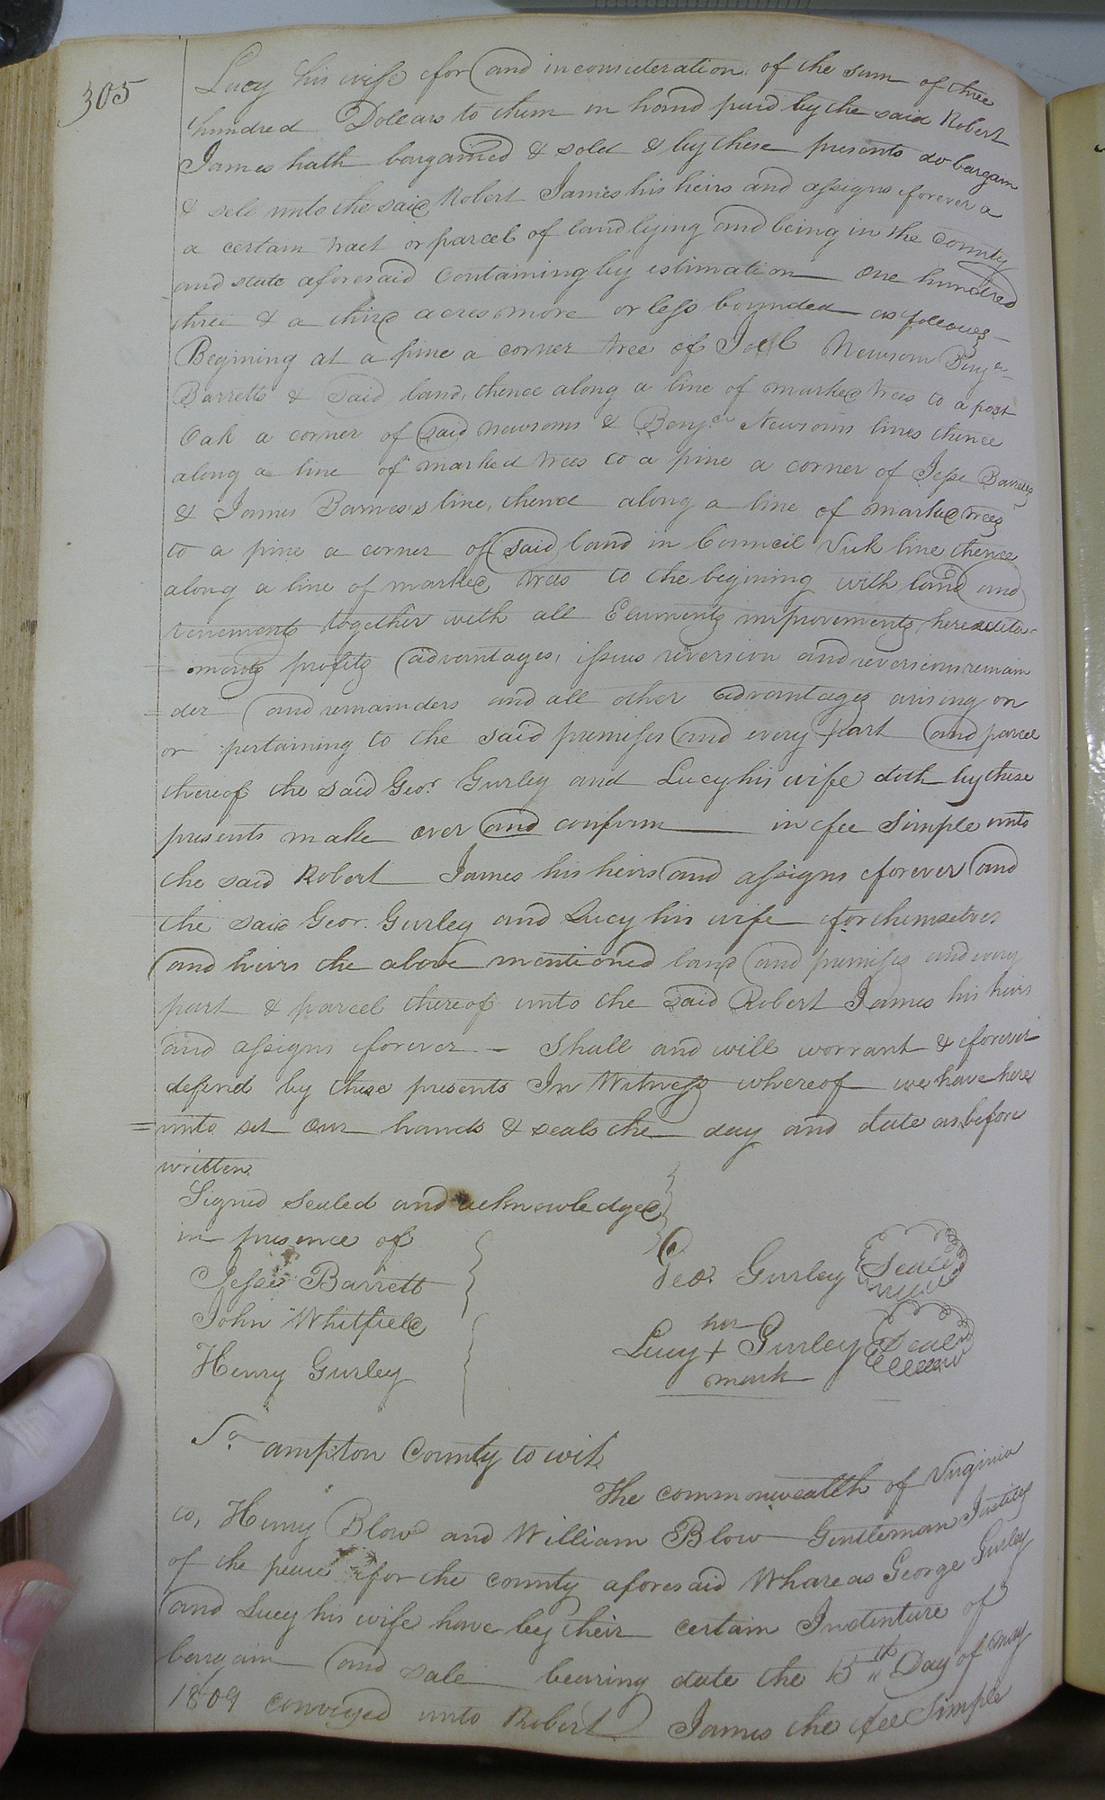 305
Lucy his wife for and in consideration of the sum of three
hundred Dollars to them in hand paid by the said Robert
James hath bargained & sold & by these presents do bargain
& sell unto the said Robert James his heirs and assigns forever a
a certain tract or parcel of land lying and being in the County
and state aforesaid Containing by estimation one hundred
three & a third acres more or less bounded as follows
Begining at a pine a corner tree of Joel Newsom Benjn
Barretts & Said land, thence along a line of marked trees to a post
Oak a corner of said Newsoms & Benjn Newsoms lines thence
along a line of marked trees to a pine a corner of Jesse Barretts
& James Barness line, thence along a line of marked trees
to a pine a corner of said land in Council Vick line thence
along a line of marked trees to the begining with land and
tenements together with all improvements heredita-
=ments profits advantages, issues reversion and reversions remain
=der and remainders and all other advantages arising on
or pertaining to the said premises and every part and parcel
thereof the said Geor. Gurley and Lucy his wife doth by these
presents make over and confirm in fee Simple unto
the said Robert James his heirs and assigns forever and
the said Geor. Gurley and Lucy his wife for themselves
and heirs the above mentioned land and premises and every
part & parcel thereof unto the said Robert James his heirs
and assigns forever - Shall and will worrant & forever
defend by these presents In Witness whereof we have here
=unto set our hands & seals the day and date as before
written
Signed Sealed and acknowledged
in presence of
Jesse Barrett
John Whitfield
Henry Gurley
Geo. Gurley Seal
her
Lucy + Gurley Seal
mark
So ampton County to wit
The commonwealth of Virginia
to, Henry Blow and William Blow Gentleman Justices
of the peace for the county aforesaid Whareas George Gurley
and Lucy his wife have by their certain Indenture of
bargain and sale bearing date the 15th Day of may
1809 conveyed unto Robert James the fee Simple